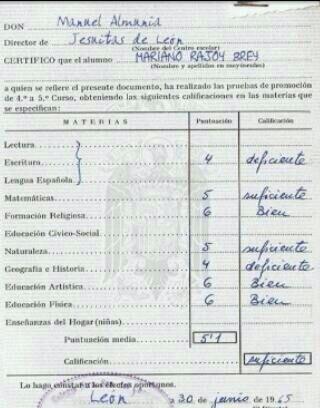 DON Manuel Almunia
Director de Jesuitas de León
(Nombre del Centro escolar)
CERTIFICO que el alumno MARIANO RAJOY BREY
(Nombre y apellidos en mayúsculas)
a quien se refiere el presente documento, ha realizado las pruebas de promoción
de 4.º a 5.º Curso, obteniendo las siguientes calificaciones en las materias que
se especifican:
MATERIAS Puntuación Calificación
Lectura
Escritura 4 deficiente
Lengua Española
Matemáticas 5 suficiente
Formación Religiosa 6 Bien
Educación Cívico-Social
Naturaleza 5 suficiente
Geografía e Historia 4 deficiente
Educación Artística 6 Bien
Educación Física 6 Bien
Enseñanzas del Hogar (niñas)
Puntuación media 5'1
Calificación suficiente
Lo hago constar a los efectos oportunos.
León a 30 de junio de 1965